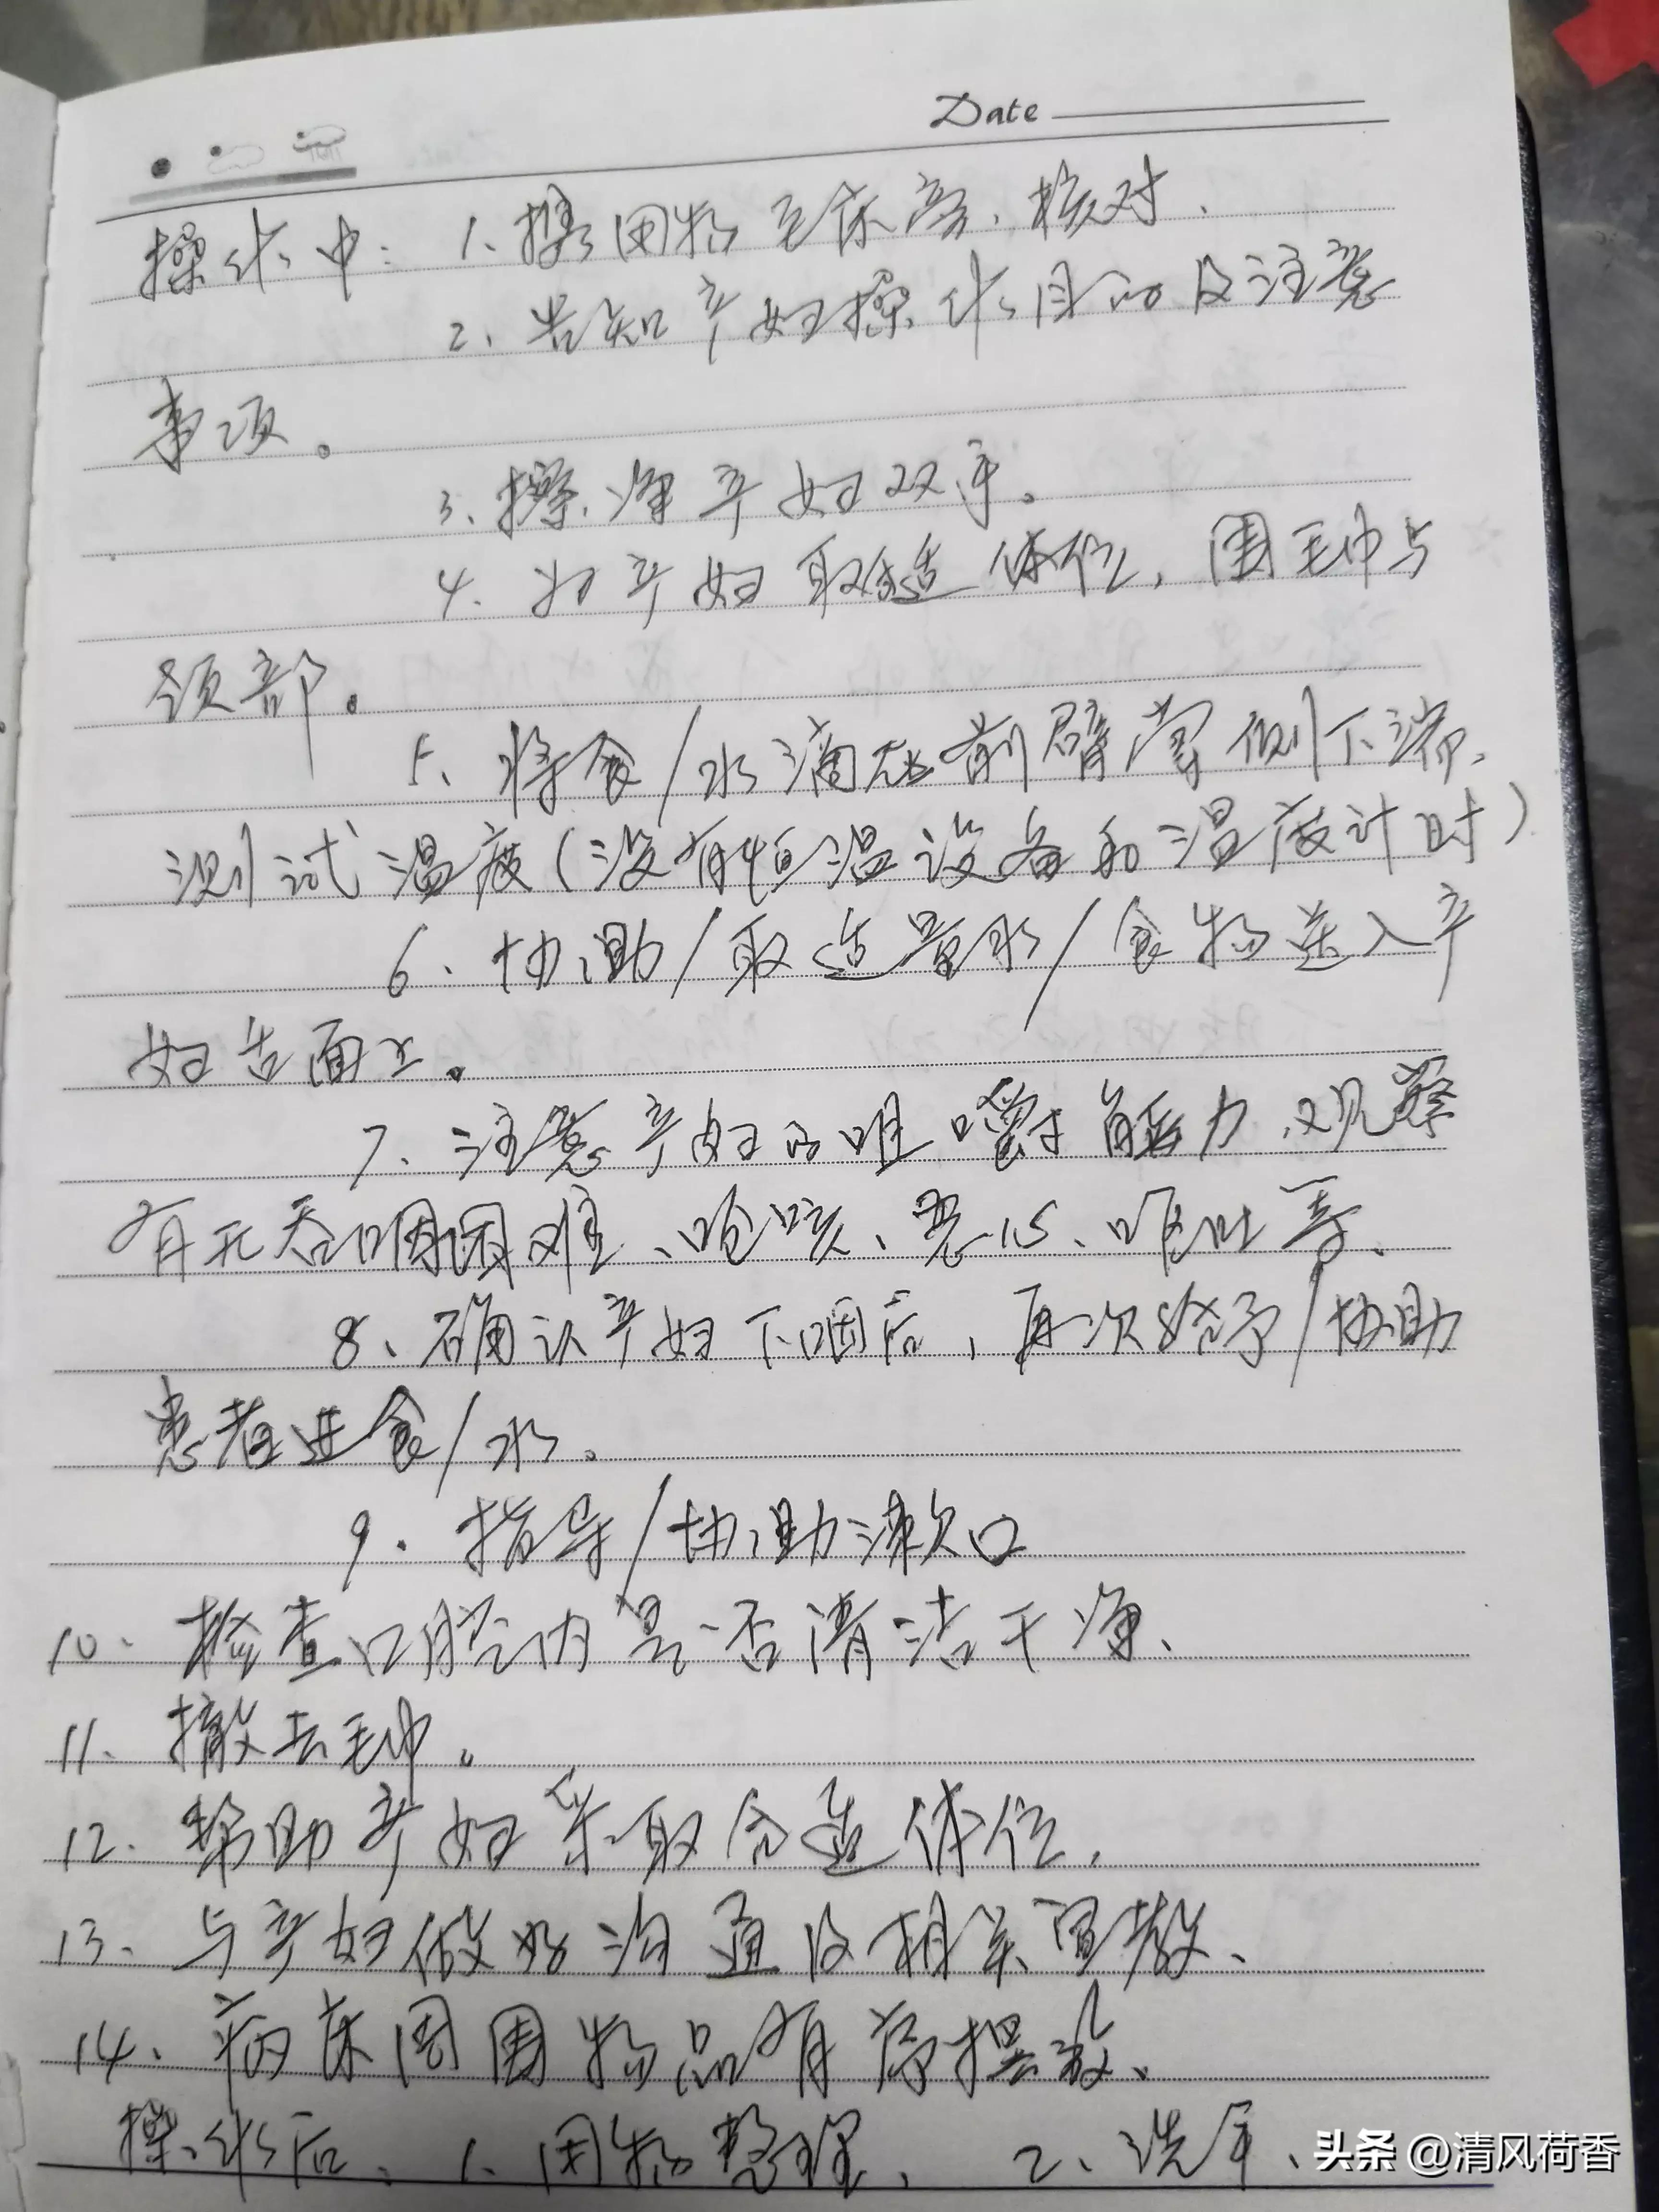 Date
操作中: 1、携用物至床旁、核对、
2、告知产妇操作目的及注意
事项。
3、擦净产妇双手。
4、协产妇取舒适体位,围毛巾与
颈部。
5、将食/水滴在前臂掌侧下端、
测试温度(没有恒温设备和温度计时)
6、协助/取适量水/食物送入产
妇舌面上。
7、注意产妇的咀嚼能力、观察
有无吞咽困难、呛咳、恶心、呕吐等、
8、确认产妇下咽后,再次给予/协助
患者进食/水。
9. 指导/协助漱口
10. 检查口腔内是否清洁干净、
11、撤去毛巾。
12. 帮助产妇采取合适体位、
13、与产妇做好沟通及相关宣教、
14、病床周围物品有序摆放、
操作后、1、用物整理、 2、洗手、
头条 @清风荷香